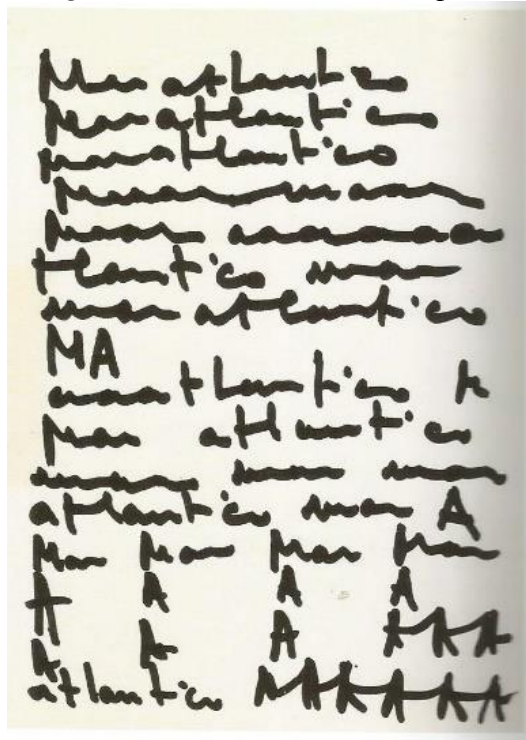 Mar atlantico
Mar atlantico
maratlantico
mar
tlantico mar
mar atlantico
MA
atlantico
Mar atlantico
mar mar mar
atlantico mar A
Mar Mar Mar Mar
A A A A
A A A A A A
atlantico A A A A A A